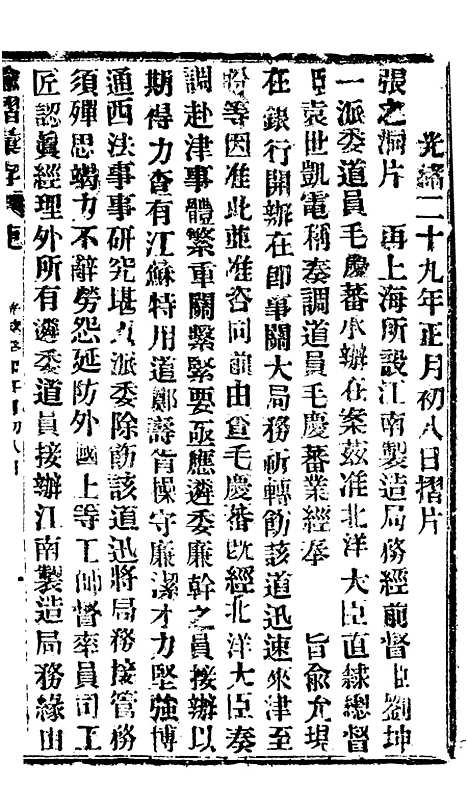 光緒二十九年正月初八日摺片
張之洞片 再上海所設江南製造局務經前督臣劉坤
一派委道員毛慶蕃承辦在案茲准北洋大臣直隸總督
臣袁世凱電稱奏調道員毛慶蕃業經奉 旨俞允現
在銀行開辦在即事關大局務祈轉飭該道迅速來津至
等因准此並准咨同前由查毛慶蕃既經北洋大臣奏
調赴津事體繁重關繫緊要亟應遴委廉幹之員接辦以
期得力查有江蘇特用道鄭壽操守廉潔才力堅強博
通西法事事研究堪派委除飭該道迅將局務接管務
須殫思竭力不辭勞怨延防外國上等工師督率員司工
匠認眞經理外所有遴委道員接辦江南製造局務緣由
諭摺彙存